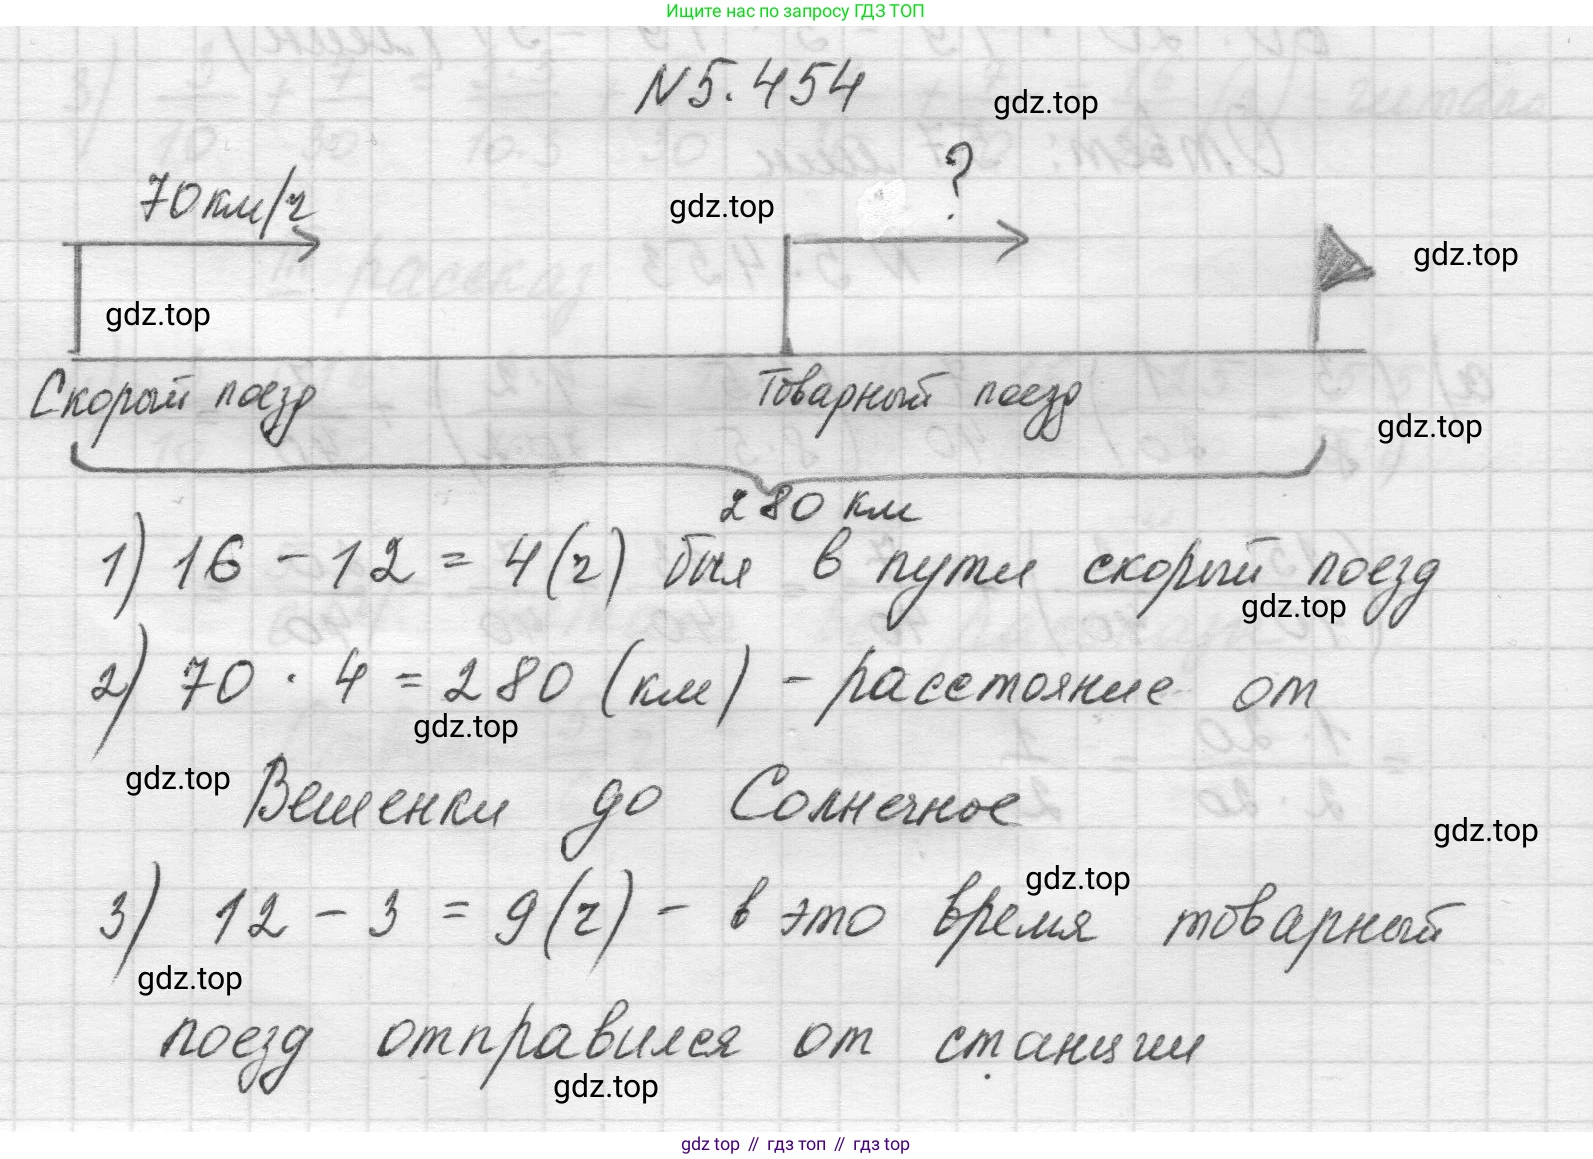 Ищите нас по запросу ГДЗ ТОП
N 5.454
gdz.top
?
70 км/ч
gdz.top
gdz.top
gdz.top
Скорый поезд
Товарный поезд
gdz.top
280 км
1) 16 - 12 = 4 (ч) был в пути скорый поезд
gdz.top
2) 70 · 4 = 280 (км) - расстояние от
gdz.top
gdz.top
Вешенки до Солнечное
gdz.top
gdz.top
3) 12 - 3 = 9 (ч) - в это время товарный
gdz.top
поезд отправился от станции
gdz.top
gdz top // гдз топ // гдз top